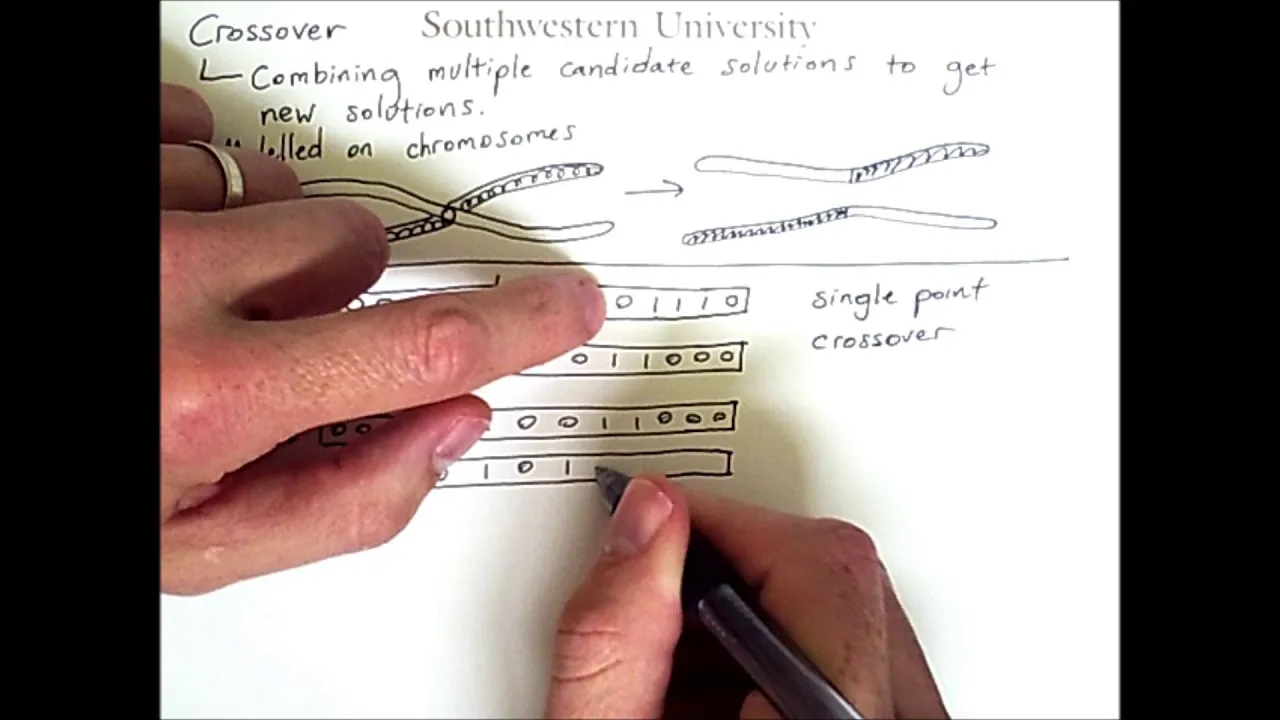 Crossover Southwestern University
Combining multiple candidate solutions to get
new solutions.
on chromosomes
0 1 1 1 0 single point
crossover
0 1 1 0 0 0
0 0 0 0 1 1 0 0 0
1 0 1